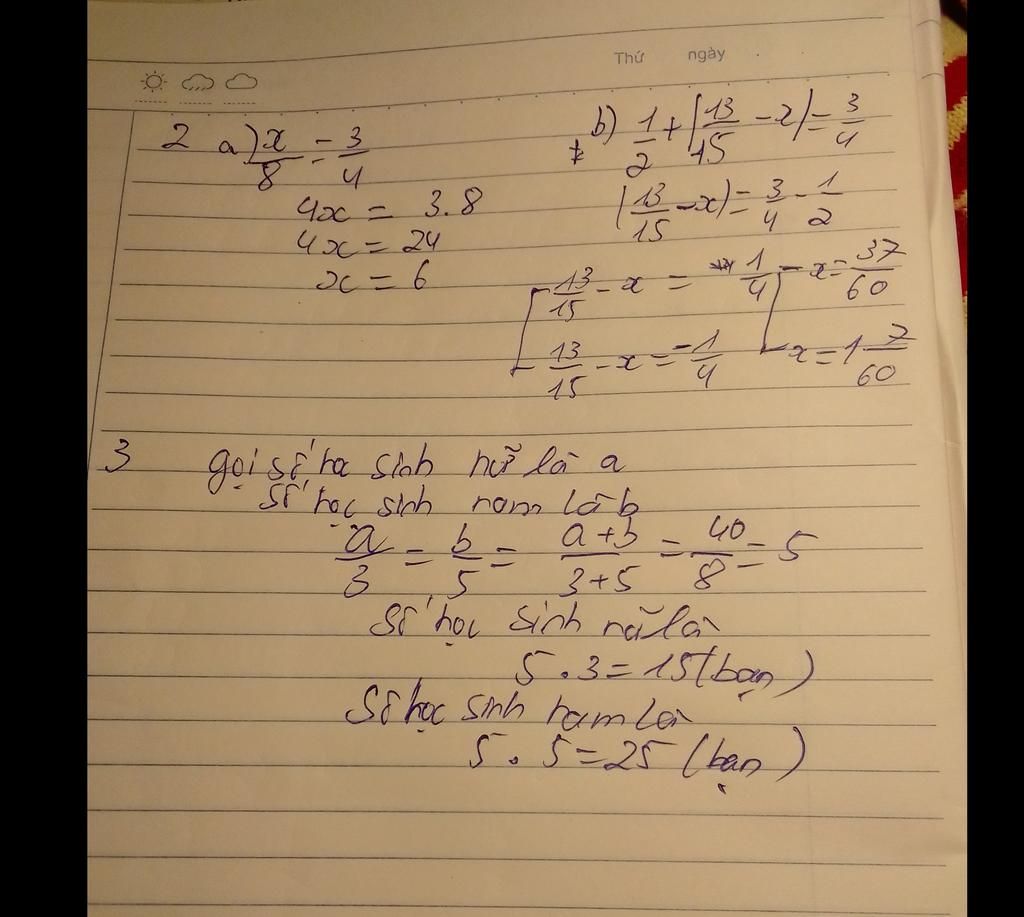 Thứ ngày
2 a) x/8 = 3/4
4x = 3.8
4x = 24
x = 6
b) 1/2 + |13/15 - x| = 3/4
|13/15 - x| = 3/4 - 1/2
13/15 - x = 1/4
x = 37/60
13/15 - x = -1/4
x = 1 7/60
3 gọi số học sinh nữ là a
số học sinh nam là b
a/3 = b/5 = a+b/3+5 = 40/8 = 5
Số học sinh nữ là
5 . 3 = 15 (bạn)
Số học sinh nam là
5 . 5 = 25 (bạn)